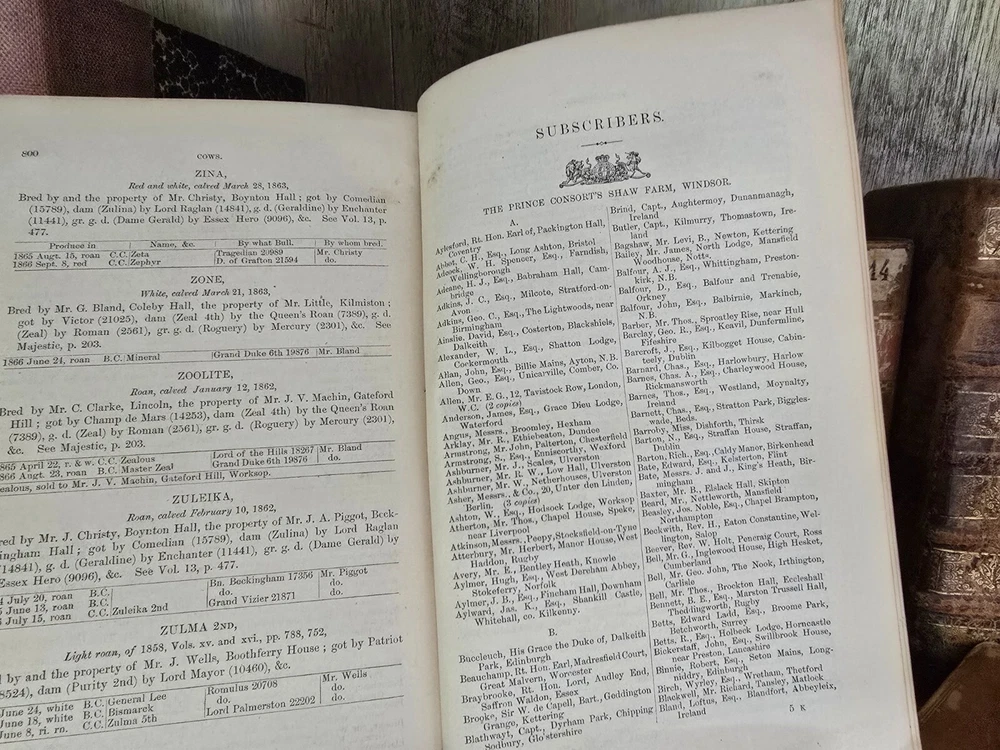 800
COWS.
ZINA,
Red and white, calved March 28, 1863,
Bred by and the property of Mr. Christy, Boynton Hall; got by Comedian
(15789), dam (Zulina) by Lord Raglan (14841), g. d. (Geraldine) by Enchanter
(11441), gr. g. d. (Dame Gerald) by Essex Hero (9096), &c. See Vol. 13, p.
477.
Produce in | Name, &c. | By what Bull. | By whom bred.
1865 Augt. 15, roan C.C. Zeta | Tragedian 20989 | Mr. Christy
1866 Sept. 8, red C.C. Zephyr | D. of Grafton 21594 | do.
ZONE,
White, calved March 21, 1863,
Bred by Mr. G. Bland, Coleby Hall, the property of Mr. Little, Kilmiston;
got by Victor (21025), dam (Zeal 4th) by the Queen's Roan (7389), g. d.
(Zeal) by Roman (2561), gr. g. d. (Roguery) by Mercury (2301), &c. See
Majestic, p. 203.
1866 June 24, roan B.C. Mineral | Grand Duke 6th 19876 | Mr. Bland
ZOOLITE,
Roan, calved January 12, 1862,
Bred by Mr. C. Clarke, Lincoln, the property of Mr. J. V. Machin, Gateford
Hill; got by Champ de Mars (14253), dam (Zeal 4th) by the Queen's Roan
(7389), g. d. (Zeal) by Roman (2561), gr. g. d. (Roguery) by Mercury (2301),
&c. See Majestic, p. 203.
865 April 22, r. & w. C.C. Zealous | Lord of the Hills 18267 | Mr. Bland
866 Augt. 23, roan B.C. Master Zeal | Grand Duke 6th 19876 | do.
ealous, sold to Mr. J. V. Machin, Gateford Hill, Worksop.
ZULEIKA,
Roan, calved February 10, 1862,
red by Mr. J. Christy, Boynton Hall, the property of Mr. J. A. Piggot, Beck-
ingham Hall; got by Comedian (15789), dam (Zulina) by Lord Raglan
(14841), g. d. (Geraldine) by Enchanter (11441), gr. g. d. (Dame Gerald) by
Essex Hero (9096), &c. See Vol. 13, p. 477.
4 July 20, roan B.C. | Bn. Beckingham 17356 | Mr. Piggot
June 13, roan B.C. | do. | do.
July 15, roan C.C. Zuleika 2nd | Grand Vizier 21871 | do.
ZULMA 2ND,
Light roan, of 1858, Vols. xv. and xvi., pp. 788, 752,
by and the property of Mr. J. Wells, Boothferry House; got by Patriot
8524), dam (Purity 2nd) by Lord Mayor (10460), &c.
June 24, white B.C. General Lee | Romulus 20708 | Mr. Wells
June 18, white B.C. Bismarck | do. | do.
June 8, ri. rn. C.C. Zulma 5th | Lord Palmerston 22202 | do.
SUBSCRIBERS.
THE PRINCE CONSORT'S SHAW FARM, WINDSOR.
A.
Aylesford, Rt. Hon. Earl of, Packington Hall,
Coventry
Abbot, C. H., Esq., Long Ashton, Bristol
W. H. Spencer, Esq., Farndish,
Wellingborough
Adeane, H. J., Esq., Babraham Hall, Cam-
bridge
Adkins, J. C., Esq., Milcote, Stratford-on-
Avon
Adkins, Geo. C., Esq., The Lightwoods, near
Birmingham
Ainslie, David, Esq., Costerton, Blackshiels,
Dalkeith
Alexander, W. L., Esq., Shatton Lodge,
Cockermouth
Allan, John, Esq., Billie Mains, Ayton, N.B.
Allen, Geo., Esq., Unicarville, Comber, Co.
Down
Allen, Mr. E. G., 12, Tavistock Row, London,
W.C. (2 copies)
Anderson, James, Esq., Grace Dieu Lodge,
Waterford
Angus, Messrs., Broomley, Hexham
Arklay, Mr. R., Ethiebeaton, Dundee
Armstrong, Mr. John, Palterton, Chesterfield
Armstrong, S., Esq., Enniscorthy, Wexford
Ashburner, Mr. J., Scales, Ulverston
Ashburner, Mr. R. W., Low Hall, Ulverston
Ashburner, Mr. W., Netherhouses, Ulverston
Asher, Messrs., & Co., 20, Unter den Linden,
Berlin. (3 copies)
Ashton, W., Esq., Hodsock Lodge, Worksop
Atherton, Mr. Thos., Chapel House, Speke,
near Liverpool
Atkinson, Messrs., Peepy, Stocksfield-on-Tyne
Atterbury, Mr. Herbert, Manor House, West
Haddon, Rugby
Avery, Mr. E., Bentley Heath, Knowle
Aylmer, Hugh, Esq., West Dereham Abbey,
Stokeferry, Norfolk
Aylmer, J. B., Esq., Fincham Hall, Downham
Aylward, Jas. K., Esq., Shankill Castle,
Whitehall, co. Kilkenny.
B.
Buccleuch, His Grace the Duke of, Dalkeith
Park, Edinburgh
Beauchamp, Rt. Hon. Earl, Madresfield Court,
Great Malvern, Worcester
Braybrooke, Rt. Hon. Lord, Audley End,
Saffron Waldon, Essex
Brooke, Sir W. de Capell, Bart., Geddington
Grange, Kettering
Blathwayt, Capt., Dyrham Park, Chipping
Sodbury, Glo'stershire
Brind, Capt., Aughtermoy, Dunamanagh,
Ireland
Butler, Capt., Kilmurry, Thomastown, Ire-
land
Bagshaw, Mr. Levi, B., Newton, Kettering
Bailey, Mr. James, North Lodge, Mansfield
Woodhouse, Notts.
Balfour, A. J., Esq., Whittingham, Preston-
kirk, N.B.
Balfour, D., Esq., Balfour and Trenabie,
Orkney
Balfour, John, Esq., Balbirnie, Markinch,
N.B.
Barbor, Mr. Thos., Sproatley Rise, near Hull
Barclay, Geo. R., Esq., Keavil, Dunfermline,
Fifeshire
Barcroft, J., Esq., Kilbogget House, Cabin-
teely, Dublin
Barnard, Chas., Esq., Harlowbury, Harlow
Barnes, Chas. A., Esq., Charleywood House,
Rickmansworth
Barnes, Thos., Esq., Westland, Moynalty,
Ireland
Barnett, Chas., Esq., Stratton Park, Biggles-
wade, Beds.
Barroby, Miss, Dishforth, Thirsk
Barton, N., Esq., Straffan House, Straffan,
Dublin
Barton, Rich., Esq., Caldy Manor, Birkenhead
Bate, Edward, Esq., Kelsterton, Flint
Bate, Messrs. J. and J., King's Heath, Bir-
mingham
Baxter, Mr. B., Elslack Hall, Skipton
Beard, Mr., Nettleworth, Mansfield
Beasley, Jos. Noble, Esq., Chapel Brampton,
Northampton
Beckwith, Rev. H., Eaton Constantine, Wel-
lington, Salop
Beever, Rev. W. Holt, Pencraig Court, Ross
Bell, Mr. G., Inglewood House, High Hesket,
Cumberland
Bell, Mr. Geo. John, The Nook, Irthington,
Carlisle
Bell, Mr. Thos., Brockton Hall, Eccleshall
Bennett, B. E., Esq., Marston Trussell Hall,
Theddingworth, Rugby
Betts, Edward Ladd, Esq., Broome Park,
Betchworth, Surrey
Betts, R., Esq., Holbeck Lodge, Horncastle
Bickerstaff, John, Esq., Swillbrook House,
near Preston, Lancashire
Binnie, Robert, Esq., Seton Mains, Long-
niddry, Edinburgh
Birch, Wyrley, Esq., Wretham, Thetford
Blackwell, Mr. Richard, Tansley, Matlock
Bland, Loftus, Esq., Blandfort, Abbeyleix,
Ireland
5 K
14